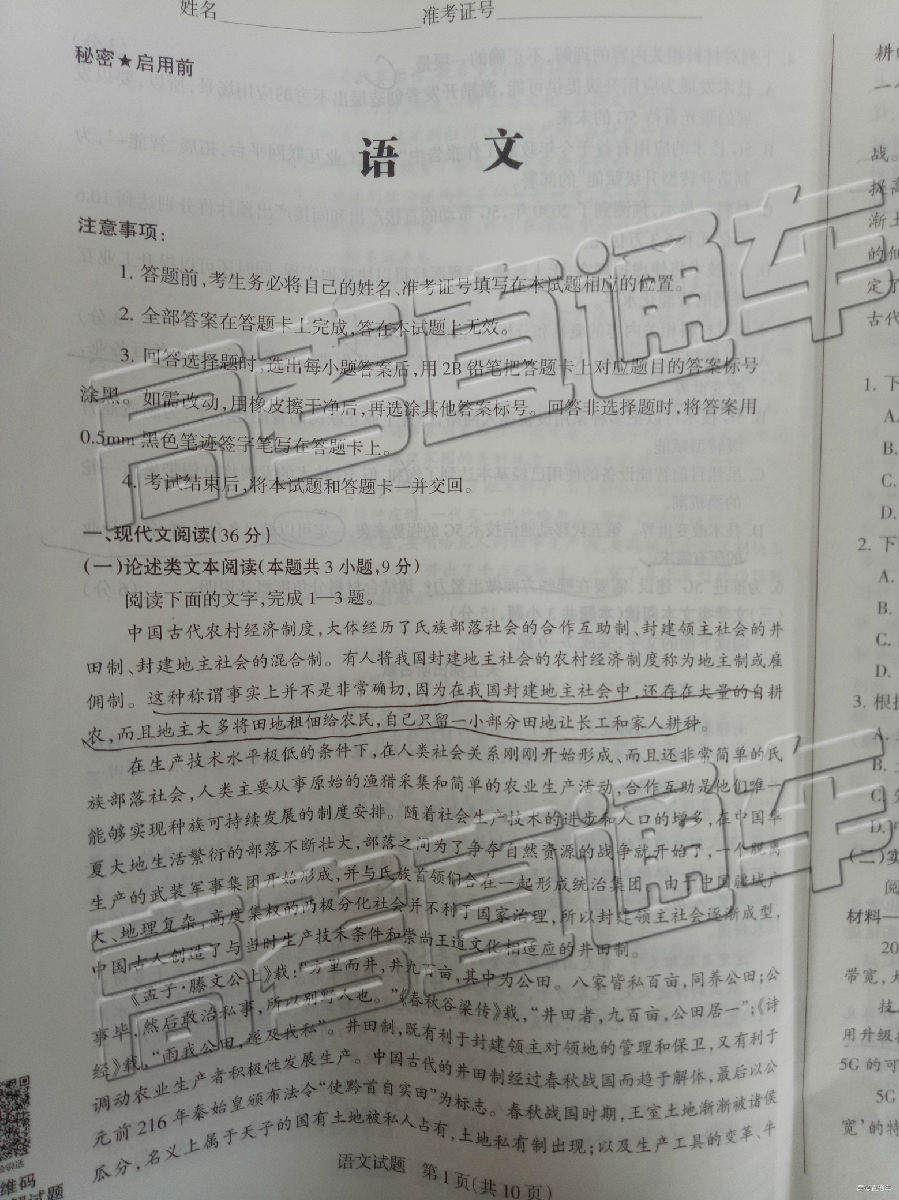 姓名 准考证号
秘密★启用前
语 文
注意事项:
1. 答题前,考生务必将自己的姓名、准考证号填写在本试题相应的位置。
2. 全部答案在答题卡上完成,答在本试题上无效。
3. 回答选择题时,选出每小题答案后,用 2B 铅笔把答题卡上对应题目的答案标号
涂黑。如需改动,用橡皮擦干净后,再选涂其他答案标号。回答非选择题时,将答案用
0.5mm 黑色笔迹签字笔写在答题卡上。
4. 考试结束后,将本试题和答题卡一并交回。
一、现代文阅读(36 分)
(一)论述类文本阅读(本题共 3 小题,9 分)
阅读下面的文字,完成 1—3 题。
中国古代农村经济制度,大体经历了氏族部落社会的合作互助制、封建领主社会的井
田制、封建地主社会的混合制。有人将我国封建地主社会的农村经济制度称为地主制或雇
佣制。这种称谓事实上并不是非常确切,因为在我国封建地主社会中,还存在大量的自耕
农,而且地主大多将田地租佃给农民,自己只留一小部分田地让长工和家人耕种。
在生产技术水平极低的条件下,在人类社会关系刚刚开始形成、而且还非常简单的氏
族部落社会,人类主要从事原始的渔猎采集和简单的农业生产活动,合作互助是他们唯一
能够实现种族可持续发展的制度安排。随着社会生产技术的进步和人口的增多,在中国华
夏大地生活繁衍的部落不断壮大,部落之间为了争夺自然资源的战争就开始了,一个脱离
生产的武装军事集团开始形成,并与氏族首领们合在一起形成统治集团。由于中国疆域广
大、地理复杂,高度集权的两极分化社会并不利于国家治理,所以封建领主社会逐渐成型,
中国古人创造了与当时生产技术条件和崇尚王道文化相适应的井田制。
《孟子·滕文公上》载:“方里而井,井九百亩,其中为公田。八家皆私百亩,同养公田;公
事毕,然后敢治私事,所以别野人也。”《春秋谷梁传》载,“井田者,九百亩,公田居一”;《诗
经》载,“雨我公田,遂及我私”。井田制,既有利于封建领主对领地的管理和保卫,又有利于
调动农业生产者积极性发展生产。中国古代的井田制经过春秋战国而趋于解体,最后以公
元前 216 年秦始皇颁布法令“使黔首自实田”为标志。春秋战国时期,王室土地渐渐被诸侯
瓜分,名义上属于天子的国有土地被私人占有,土地私有制出现;以及生产工具的变革、牛
语文试题 第 1 页(共 10 页)
高考直通车
高考直通车
耕
一
战。
提高
渐
的
定了
古代
1. 下
A.
B.
C.
D.
2. 下
A.
B.
C.
D.
3. 根
A.
B.
C.
D.
(二)实
阅
材料一
20
带宽,
技
用升级
5G 的可
5G
宽’的特
维码
试题